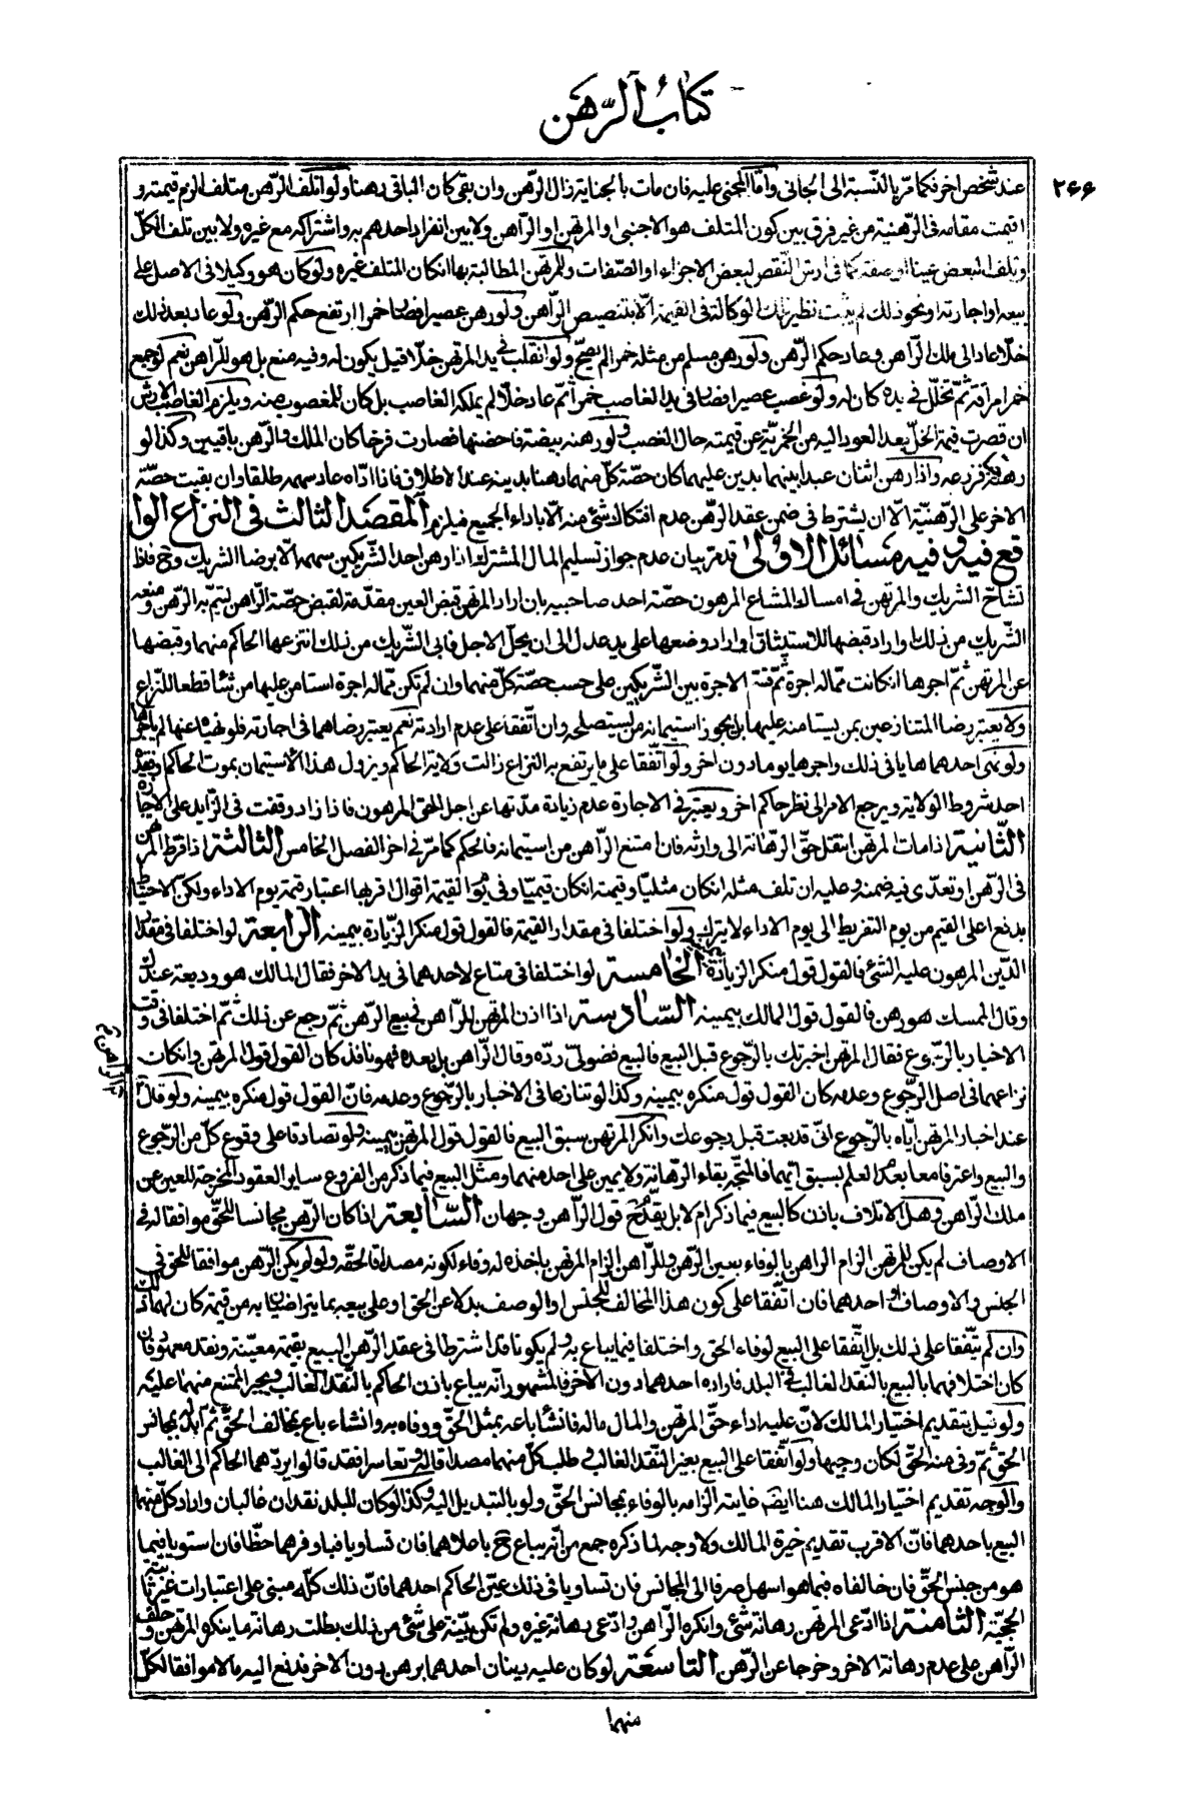 كتاب الرّهن
٢٦۶
عند شخص اخر فكما مرّ بالنّسبة الى الجانى وامّا المجنى عليه فان مات بالجناية زال الرّهن وان بقى كان الباقى رهنا ولو اتلف الرّهن متلف الزم قيمته و
اقيمت مقامه فى الرّهنية من غير فرق بين كون المتلف هو الاجنبى او المرتهن او الرّاهن ولا بين انفراد احدهم به واشتراكه مع غيره ولا بين تلف الكلّ
وتلف البعض عينا او صفة كما فى ارش النّقص لبعض الاجزاء او الصّفات وللمرتهن المطالبة بها ان كان المتلف غيره ولو كان هو وكيلا فى الاصل على
بيعه او اجارته او نحو ذلك لم يثبت نظير تلك الوكالة فى القيمة الّا بتنصيص الرّاهن ولو رهن عصيرا فصار خمرا ارتفع حكم الرّهن ولو عاد بعد ذلك
خلّا عاد الى ملك الرّاهن وعاد حكم الرّهن ولو رهن مسلم من مثله خمرا لم يصحّ ولو انقلب فى يد المرتهن خلّا قيل يكون له وفيه منع بل هو للرّاهن نعم لو جمع
خمرا مراقة ثمّ تخلّل فى يده كان له ولو غصب عصيرا فصار فى يد الغاصب خمرا ثمّ عاد خلّا لم يملكه الغاصب بل كان للمغصوب منه ويلزم الغاصب الارش
ان قصرت قيمة الخلّ بعد العود اليه من الخمريّة عن قيمته حال الغصب ولو رهنه بيضة فاحضنها فصارت فرخا كان الملك والرّهن باقيين وكذا لو
رهنه فزرعه واذا رهن اثنان عبدا بينهما بدين عليهما كان حصّة كلّ منهما رهنا بدينه عند الاطلاق فاذا ادّاه عاد سهمه طلقا وان بقيت حصّة
الاخر على الرّهنيّة الّا ان يشترط فى ضمن عقد الرّهن عدم افتكاك شئ منه الّا باداء الجميع فيلزم المقصد الثالث فى النزاع الوا
قع فيه وفيه مسائل الاولى قد مرّ بيان عدم جواز تسليم المال المشترك اذا رهن احد الشّريكين سهمه الّا برضا الشريك وح فلو
تشاحّ الشريك والمرتهن فى امساك المشاع المرهون حصّة احد صاحبيه بان اراد المرتهن قبض العين مقدّمة لقبض حصّة الرّاهن ليتمّ به الرّهن ومنعه
الشّريك من ذلك او اراد قبضها للاستيثاق او اراد وضعها على يد عدل الى ان يحلّ الاجل فابى الشّريك من ذلك انتزعها الحاكم منهما وقبضها
عن المرتهن ثمّ اجرها ان كانت ممّا له اجرة ثمّ قسّم الاجرة بين الشّريكين على حسب حصّة كلّ منهما وان لم تكن ممّا له اجرة استامن عليها من شاء قطعا للنّزاع
ولا يعتبر رضا المتنازعين بمن يستامنه عليها بل يجوز استيمانه من يستصلحه وان اتّفقا على عدم ارادته نعم يعتبر رضاهما فى اجارته فلو نهياه عنها لم ياجرها
ولو نهى احدهما هايا فى ذلك واجرها يوما دون اخر ولو اتّفقا على ما يرتفع به النزاع زالت ولاية الحاكم ويزول هذا الاستيمان بموت الحاكم وفقده
احد شروط الولاية ويرجع الامر الى نظر حاكم اخر ويعتبر فى الاجارة عدم زيادة مدّتها عن اجل الحق المرهون فاذا زاد وقفت فى الزّايد على الاجازة
الثّانية اذا مات المرتهن انتقل حقّ الرّهانة الى وارثه فان امتنع الرّاهن من استيمانه فالحكم كما مرّ فى اخر الفصل الخامس الثالثة اذا فرط المرتهن
فى الرّهن او تعدّى فيه ضمنه وعليه ان تلف مثله ان كان مثليّا وقيمته ان كان قيميّا وفى يوم القيمة اقوال اقربها اعتبار قيمة يوم الاداء ولكنّ الاحتياط
بدفع اعلى القيم من يوم التفريط الى يوم الاداء لا يترك ولو اختلفا فى مقدار القيمة فالقول قول منكر الزّيادة بيمينه الرابعة لو اختلفا فى مقدار
الدّين المرهون عليه الشّئ فالقول قول منكر الزيادة بيمينه الخامسة لو اختلفا فى متاع لاحدهما فى يد الاخر فقال المالك هو وديعة عندك
وقال الممسك هو رهن فالقول قول المالك بيمينه السّادسة اذا اذن المرتهن للرّاهن فى بيع الرّهن ثمّ رجع عن ذلك ثمّ اختلفا فى وقت
الاخبار بالرّجوع فقال المرتهن اخبرتك بالرّجوع قبل البيع فالبيع فضولىّ ردّه وقال الرّاهن بل بعده فهو نافذ كان القول قول المرتهن وان كان
نزاعهما فى اصل الرّجوع وعدمه كان القول قول منكره بيمينه وكذا لو تنازعا فى الاخبار بالرّجوع وعدمه فانّ القول قول منكره بيمينه ولو قال الرّاهن
عند اخبار المرتهن ايّاه بالرّجوع انّى قد بعت قبل رجوعك وانكر المرتهن سبق البيع فالقول قول المرتهن بيمينه ولو تصادقا على وقوع كلّ من الرّجوع
والبيع واعترفا معا بعدم العلم بسبق ايّهما فالمتّجه بقاء الرّهانة ولا يمين على احد منهما ومثل البيع فيما ذكر من الفروع ساير العقود المخرجة للعين عن
ملك الرّاهن وهل الاتلاف باذن كالبيع فيما ذكر ام لا بل يقدّم قول الرّاهن وجهان السّابعة اذا كان الرّهن مجانسا للحقّ موافقا له فى
الاوصاف لم يكن للمرتهن الزام الراهن بالوفاء بعين الرّهن وللرّاهن الزام المرتهن باخذه له وفاء لكونه مصداقا لحقّه ولو لم يكن الرّهن موافقا للحق فى
الجنس والاوصاف او احدهما فان اتّفقا على كون هذا المخالف للجنس او الوصف بدلا عن الحق او على بيعه بما يتراضيان به من قيمة كان لهما ذلك
وان لم يتّفقا على ذلك بل اتّفقا على البيع لوفاء الحق واختلفا فيما يباع به ولم يكونا قد اشترطا فى عقد الرّهن البيع بقيمة معيّنة ونقد معهود فان
كان اختلافهما بالبيع بالنّقد الغالب فى البلد فاراده احدهما دون الاخر فالمشهور انّه يباع باذن الحاكم بالنّقد الغالب ويجبر الممتنع منهما عليه
ولو قيل بتقديم اختيار المالك لانّ عليه اداء حقّ المرتهن والمال ماله فان شاء باعه بمثل الحقّ ووفاه به وان شاء باع بمخالف الحقّ ثم ابدله بمجانس
الحقّ ثمّ وفى منه الحقّ لكان وجيها ولو اتّفقا على البيع بغير النّقد الغالب وطلب كلّ منهما مصداقا له وتعاسرا فقد قالوا يردّهما الحاكم الى الغالب
والوجه تقديم اختيار المالك هنا ايضا غايته الزامه بالوفاء بمجانس الحقّ ولو بالتبديل اليه وكذا لو كان للبلد نقدان غالبان واراد كلّ منهما
البيع باحدهما فانّ الاقرب تقديم خيرة المالك ولا وجه لما ذكره جمع من انّه يباع ح باعلاهما فان تساويا فباوفرهما حظّا فان استويا فبما
هو من جنس الحقّ فان خالفاه فبما هو اسهل صرفا الى المجانس فان تساويا فى ذلك عيّن الحاكم احدهما فانّ ذلك كلّه مبنى على اعتبارات غير ثابتة
الحجيّة الثامنة اذا ادّعى المرتهن رهانة شئ وانكره الرّاهن وادّعى رهانة غيره ولم تكن بيّنة على شئ من ذلك بطلت رهانة ما ينكره المرتهن وحلف
الرّاهن على عدم رهانة الاخر وخرجا عن الرّهن التاسعة لو كان عليه دينان احدهما برهن دون الاخر فدفع اليه مالا موافقا لكلّ
منهما